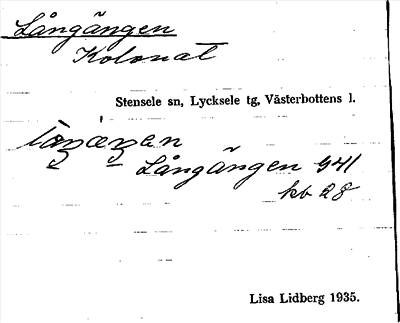 Långängen
Kolonat
Stensele sn, Lycksele tg, Västerbottens l.
Långängen 941
kb 28
Lisa Lidberg 1935.